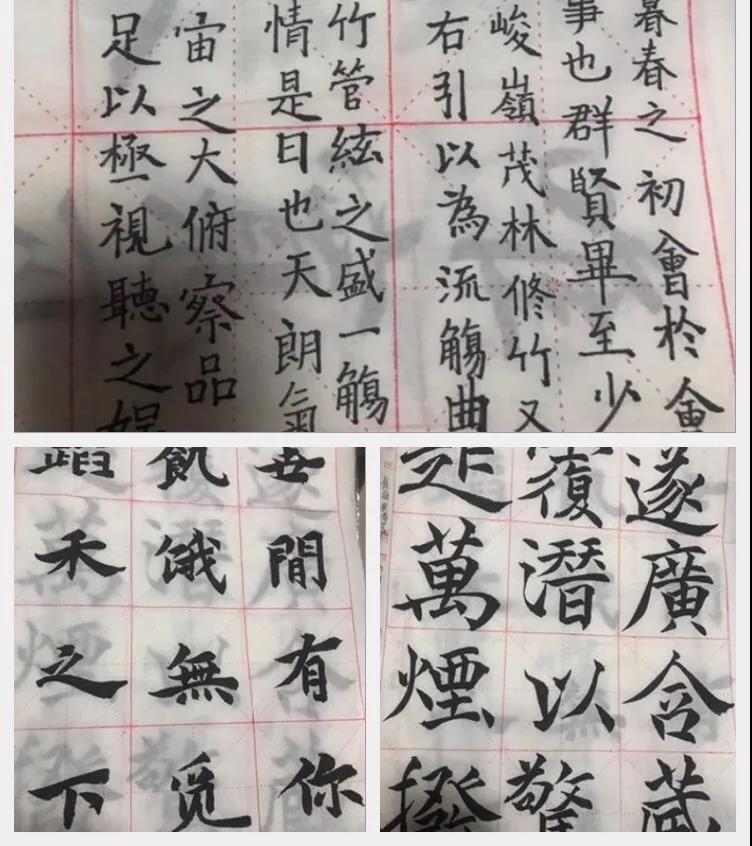 暮春之初會於會
事也群賢畢至少
峻嶺茂林修竹又
右引以為流觴曲
竹管絃之盛一觴
情是日也天朗氣
宙之大俯察品
足以極視聽之娛
間有你
飢餓無覓
禾之下
遂廣含藏
復潛以驚
是萬煙撥